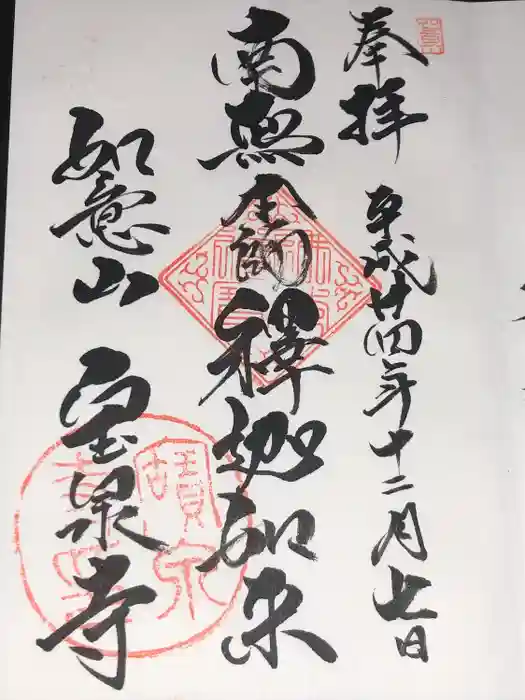 奉拝
平成廿四年十二月七日
南無 釋迦如来
如意山
宝泉寺